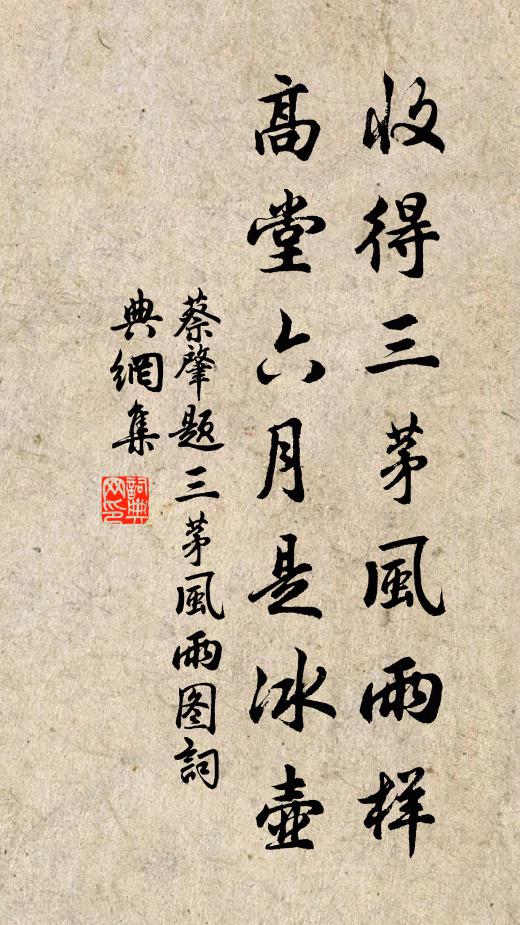 收得三茅風雨样
高堂六月是冰壺
蔡肇题三茅風雨图詞
典網集
詞典网印